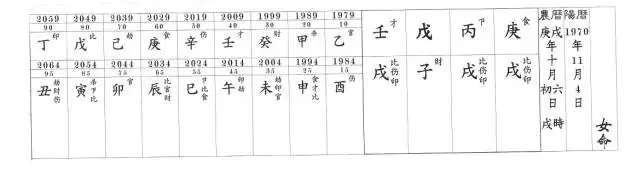 2059 2049 2039 2029 2019 2009 1999 1989 1979
90 80 70 60 50 40 30 20 10
丁印 戊比 己劫 庚食 辛伤 壬才 癸财 甲杀 乙官 壬才 戊 丙卩 庚食
2064 2054 2044 2034 2024 2014 2004 1994 1984
95 85 75 65 55 45 35 25 15
丑劫财伤 寅杀卩比 卯官 辰比官财 巳卩比食 午印劫 未劫印官 申食才比 酉伤 戌比伤印 子财 戌比伤印 戌比伤印
農曆庚戌年十月初六日戌時
陽曆1970年11月4日
女命